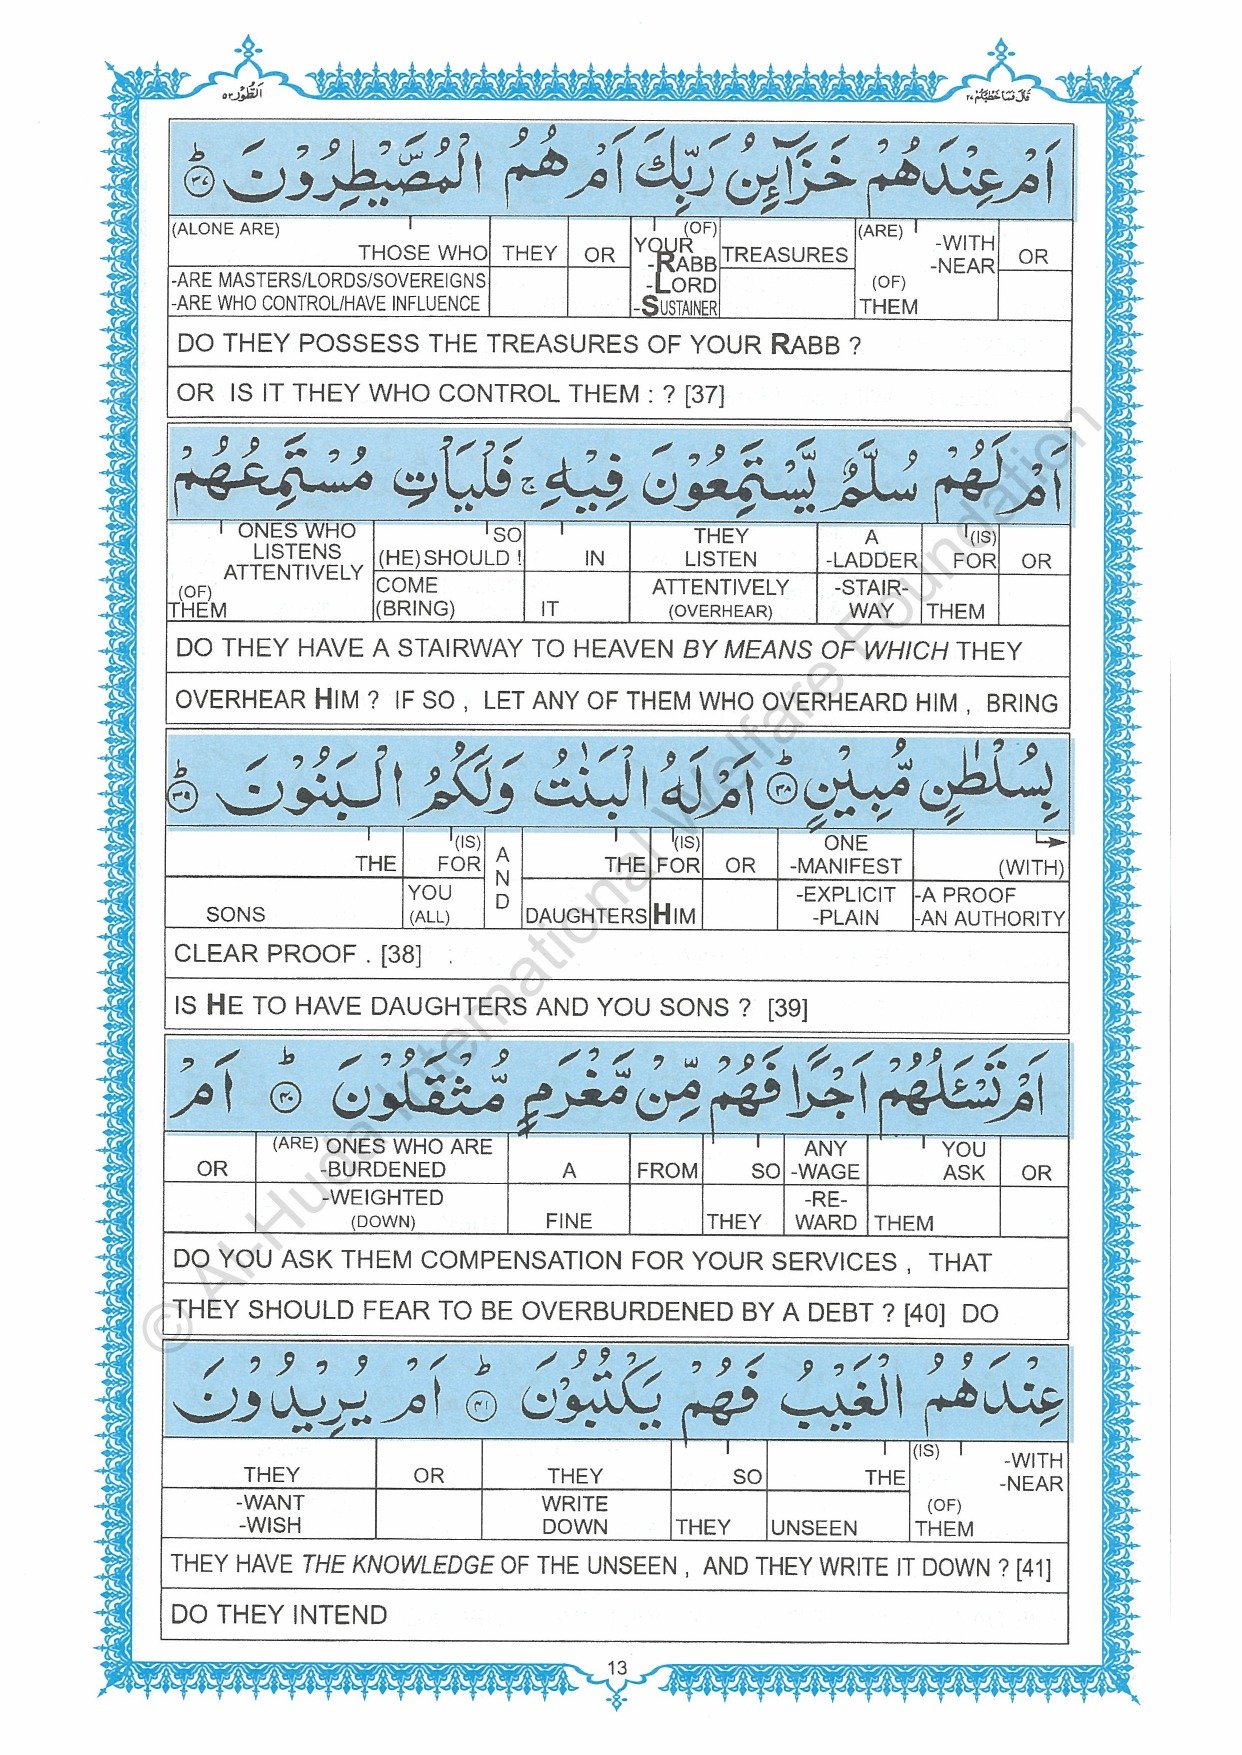 الطُّوْر ٥٢
قَالَ فَمَا خَطْبُكُمْ ٢٧
اَمْ عِنْدَهُمْ خَزَآئِنُ رَبِّكَ اَمْ هُمُ الْمُصَۜيْطِرُوْنَ ؕ ٣٧
(ALONE ARE) THOSE WHO THEY OR (OF) YOUR -RABB TREASURES (ARE) -WITH -NEAR OR
-ARE MASTERS/LORDS/SOVEREIGNS -LORD (OF)
-ARE WHO CONTROL/HAVE INFLUENCE -SUSTAINER THEM
DO THEY POSSESS THE TREASURES OF YOUR RABB ?
OR IS IT THEY WHO CONTROL THEM : ? [37]
اَمْ لَهُمْ سُلَّمٌ يَّسْتَمِعُوْنَ فِيْهِ ۚ فَلْيَاْتِ مُسْتَمِعُهُمْ
ONES WHO LISTENS ATTENTIVELY SO (HE)SHOULD ! IN THEY LISTEN A -LADDER (IS) FOR OR
(OF) THEM COME (BRING) IT ATTENTIVELY (OVERHEAR) -STAIR-WAY THEM
DO THEY HAVE A STAIRWAY TO HEAVEN BY MEANS OF WHICH THEY
OVERHEAR HIM ? IF SO , LET ANY OF THEM WHO OVERHEARD HIM , BRING
بِسُلْطٰنٍ مُّبِيْنٍ ؕ ٣٨ اَمْ لَهُ الْبَنٰتُ وَلَكُمُ الْبَنُوْنَ ؕ ٣٩
THE (IS) FOR AND THE (IS) FOR OR ONE -MANIFEST (WITH)
SONS YOU (ALL) DAUGHTERS HIM -EXPLICIT -PLAIN -A PROOF -AN AUTHORITY
CLEAR PROOF . [38]
IS HE TO HAVE DAUGHTERS AND YOU SONS ? [39]
اَمْ تَسْـَٔلُهُمْ اَجْرًا فَهُمْ مِّنْ مَّغْرَمٍ مُّثْقَلُوْنَ ؕ ٤٠ اَمْ
OR (ARE) ONES WHO ARE -BURDENED A FROM SO ANY -WAGE YOU ASK OR
-WEIGHTED (DOWN) FINE THEY -RE-WARD THEM
DO YOU ASK THEM COMPENSATION FOR YOUR SERVICES , THAT
THEY SHOULD FEAR TO BE OVERBURDENED BY A DEBT ? [40] DO
عِنْدَهُمُ الْغَيْبُ فَهُمْ يَكْتُبُوْنَ ؕ ٤١ اَمْ يُرِيْدُوْنَ
THEY OR THEY SO THE (IS) -WITH -NEAR
-WANT -WISH WRITE DOWN THEY UNSEEN (OF) THEM
THEY HAVE THE KNOWLEDGE OF THE UNSEEN , AND THEY WRITE IT DOWN ? [41]
DO THEY INTEND
13
© Al-Huda International Welfare Foundation